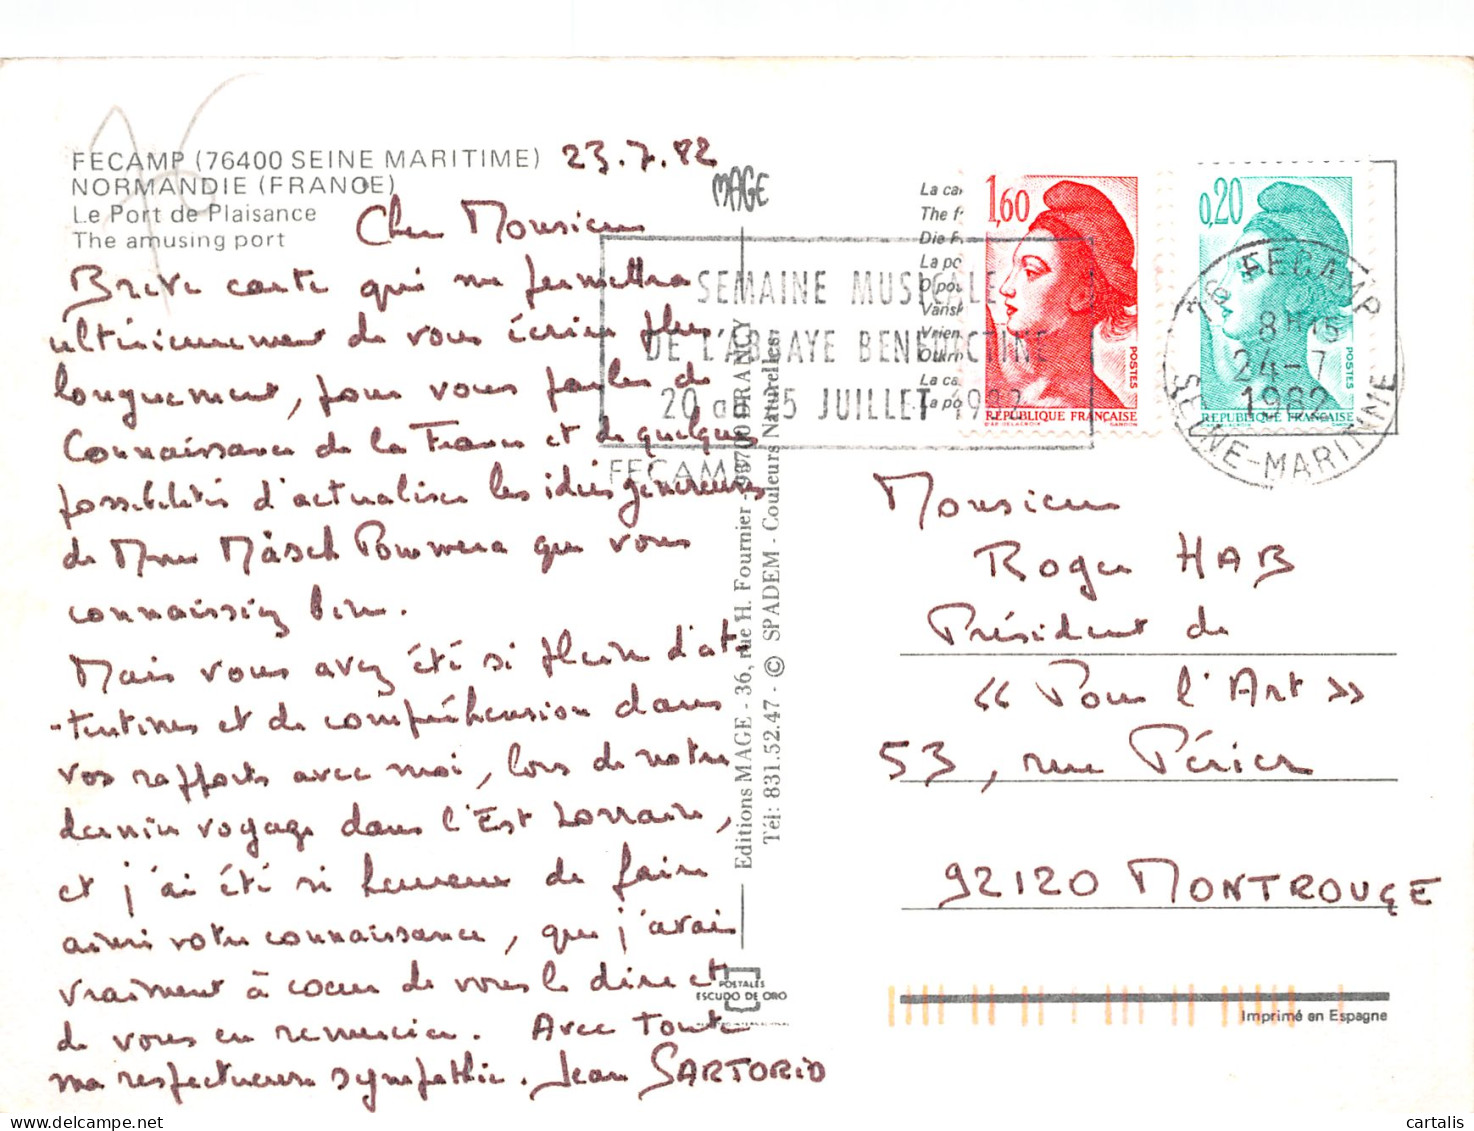 FECAMP (76400 SEINE MARITIME)
NORMANDIE (FRANCE)
Le Port de Plaisance
The amusing port
23.7.82
Cher Monsieur
Breve carte qui me permettra
ultérieurement de vous écrire plus
longuement, pour vous parler de
Connaissance de la France et de quelques
possibilités d'actualiser les idées généreuses
de Mme Màsch Pommera que vous
connaissiez bien.
Mais vous avez été si plein d'at-
-tentions et de compréhension dans
vos rapports avec moi, lors de notre
dernier voyage dans l'Est Lorrain,
et j'ai été si heureux de faire
ainsi votre connaissance, que j'avais
vraiment à coeur de vous le dire et
de vous en remercier. Avec toute
ma respectueuse sympathie. Jean SARTORIO
MAGE
Editions MAGE - 36, rue H. Fournier - 93700 DRANCY
Tél: 831.52.47 - © SPADEM - Couleurs Naturelles
POSTALES
ESCUDO DE ORO
La ca
The f
Die F
La po
O po
Vansk
Vrien
La ca
La po
SEMAINE MUSICALE
DE L'ABBAYE BENEDICTINE
20 au 25 JUILLET 1982
FECAMP
1,60
POSTES
REPUBLIQUE FRANÇAISE
D'AP. DELACROIX GANDON
0,20
POSTES
REPUBLIQUE FRANÇAISE
76 FECAMP
8H15
24-7
1982
SEINE-MARITIME
Monsieur
Roger HAB
Président de
« Pour l'Art »
53, rue Périer
92120 MONTROUGE
Imprimé en Espagne
cartalis